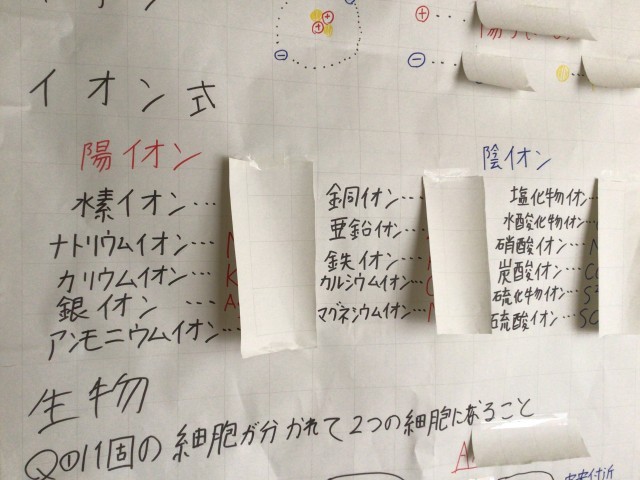 イオン式
陽イオン
水素イオン…
ナトリウムイオン… N
カリウムイオン… K
銀イオン … A
アンモニウムイオン…
銅イオン…
亜鉛イオン…
鉄イオン…
カルシウムイオン… C
マグネシウムイオン… M
陰イオン
塩化物イオン…
水酸化物イオン…
硝酸イオン… N
炭酸イオン… CO
硫化物イオン… S²
硫酸イオン… SO
生物
Q①1個の細胞が分かれて2つの細胞になること
A
中央付近